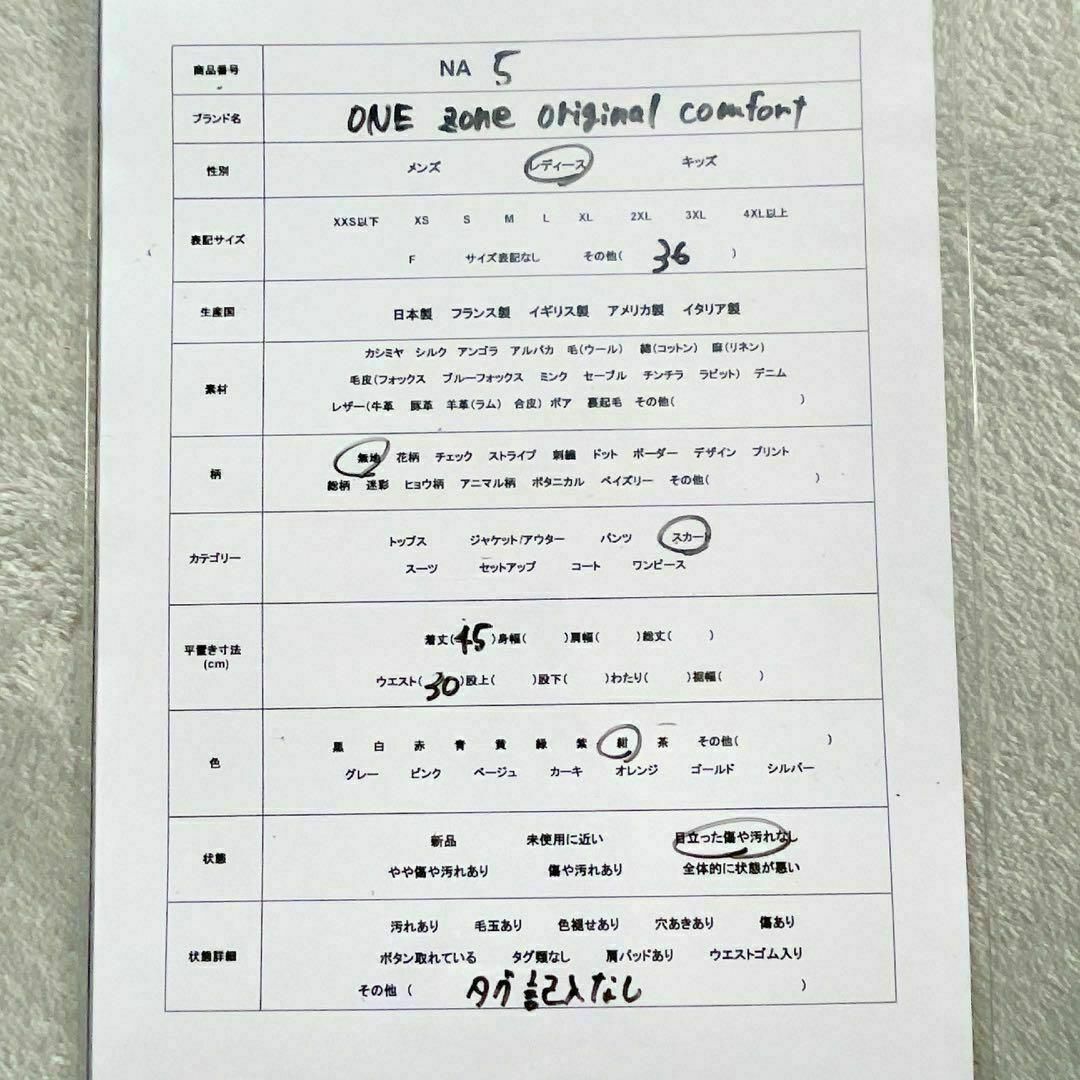 商品番号 NA 5
ブランド名 ONE zone original comfort
性別 メンズ レディース キッズ
表記サイズ XXS以下 XS S M L XL 2XL 3XL 4XL以上
F サイズ表記なし その他( 36 )
生産国 日本製 フランス製 イギリス製 アメリカ製 イタリア製
素材 カシミヤ シルク アンゴラ アルパカ 毛(ウール) 綿(コットン) 麻(リネン)
毛皮(フォックス ブルーフォックス ミンク セーブル チンチラ ラビット) デニム
レザー(牛革 豚革 羊革(ラム) 合皮) ボア 裏起毛 その他( )
柄 無地 花柄 チェック ストライプ 刺繍 ドット ボーダー デザイン プリント
総柄 迷彩 ヒョウ柄 アニマル柄 ボタニカル ペイズリー その他( )
カテゴリー トップス ジャケット/アウター パンツ スカート
スーツ セットアップ コート ワンピース
平置き寸法 (cm) 着丈( 45 )身幅( )肩幅( )総丈( )
ウエスト( 30 )股上( )股下( )わたり( )裾幅( )
色 黒 白 赤 青 黄 緑 紫 紺 茶 その他( )
グレー ピンク ベージュ カーキ オレンジ ゴールド シルバー
状態 新品 未使用に近い 目立った傷や汚れなし
やや傷や汚れあり 傷や汚れあり 全体的に状態が悪い
状態詳細 汚れあり 毛玉あり 色褪せあり 穴あきあり 傷あり
ボタン取れている タグ類なし 肩パッドあり ウエストゴム入り
その他 ( タグ記入なし )